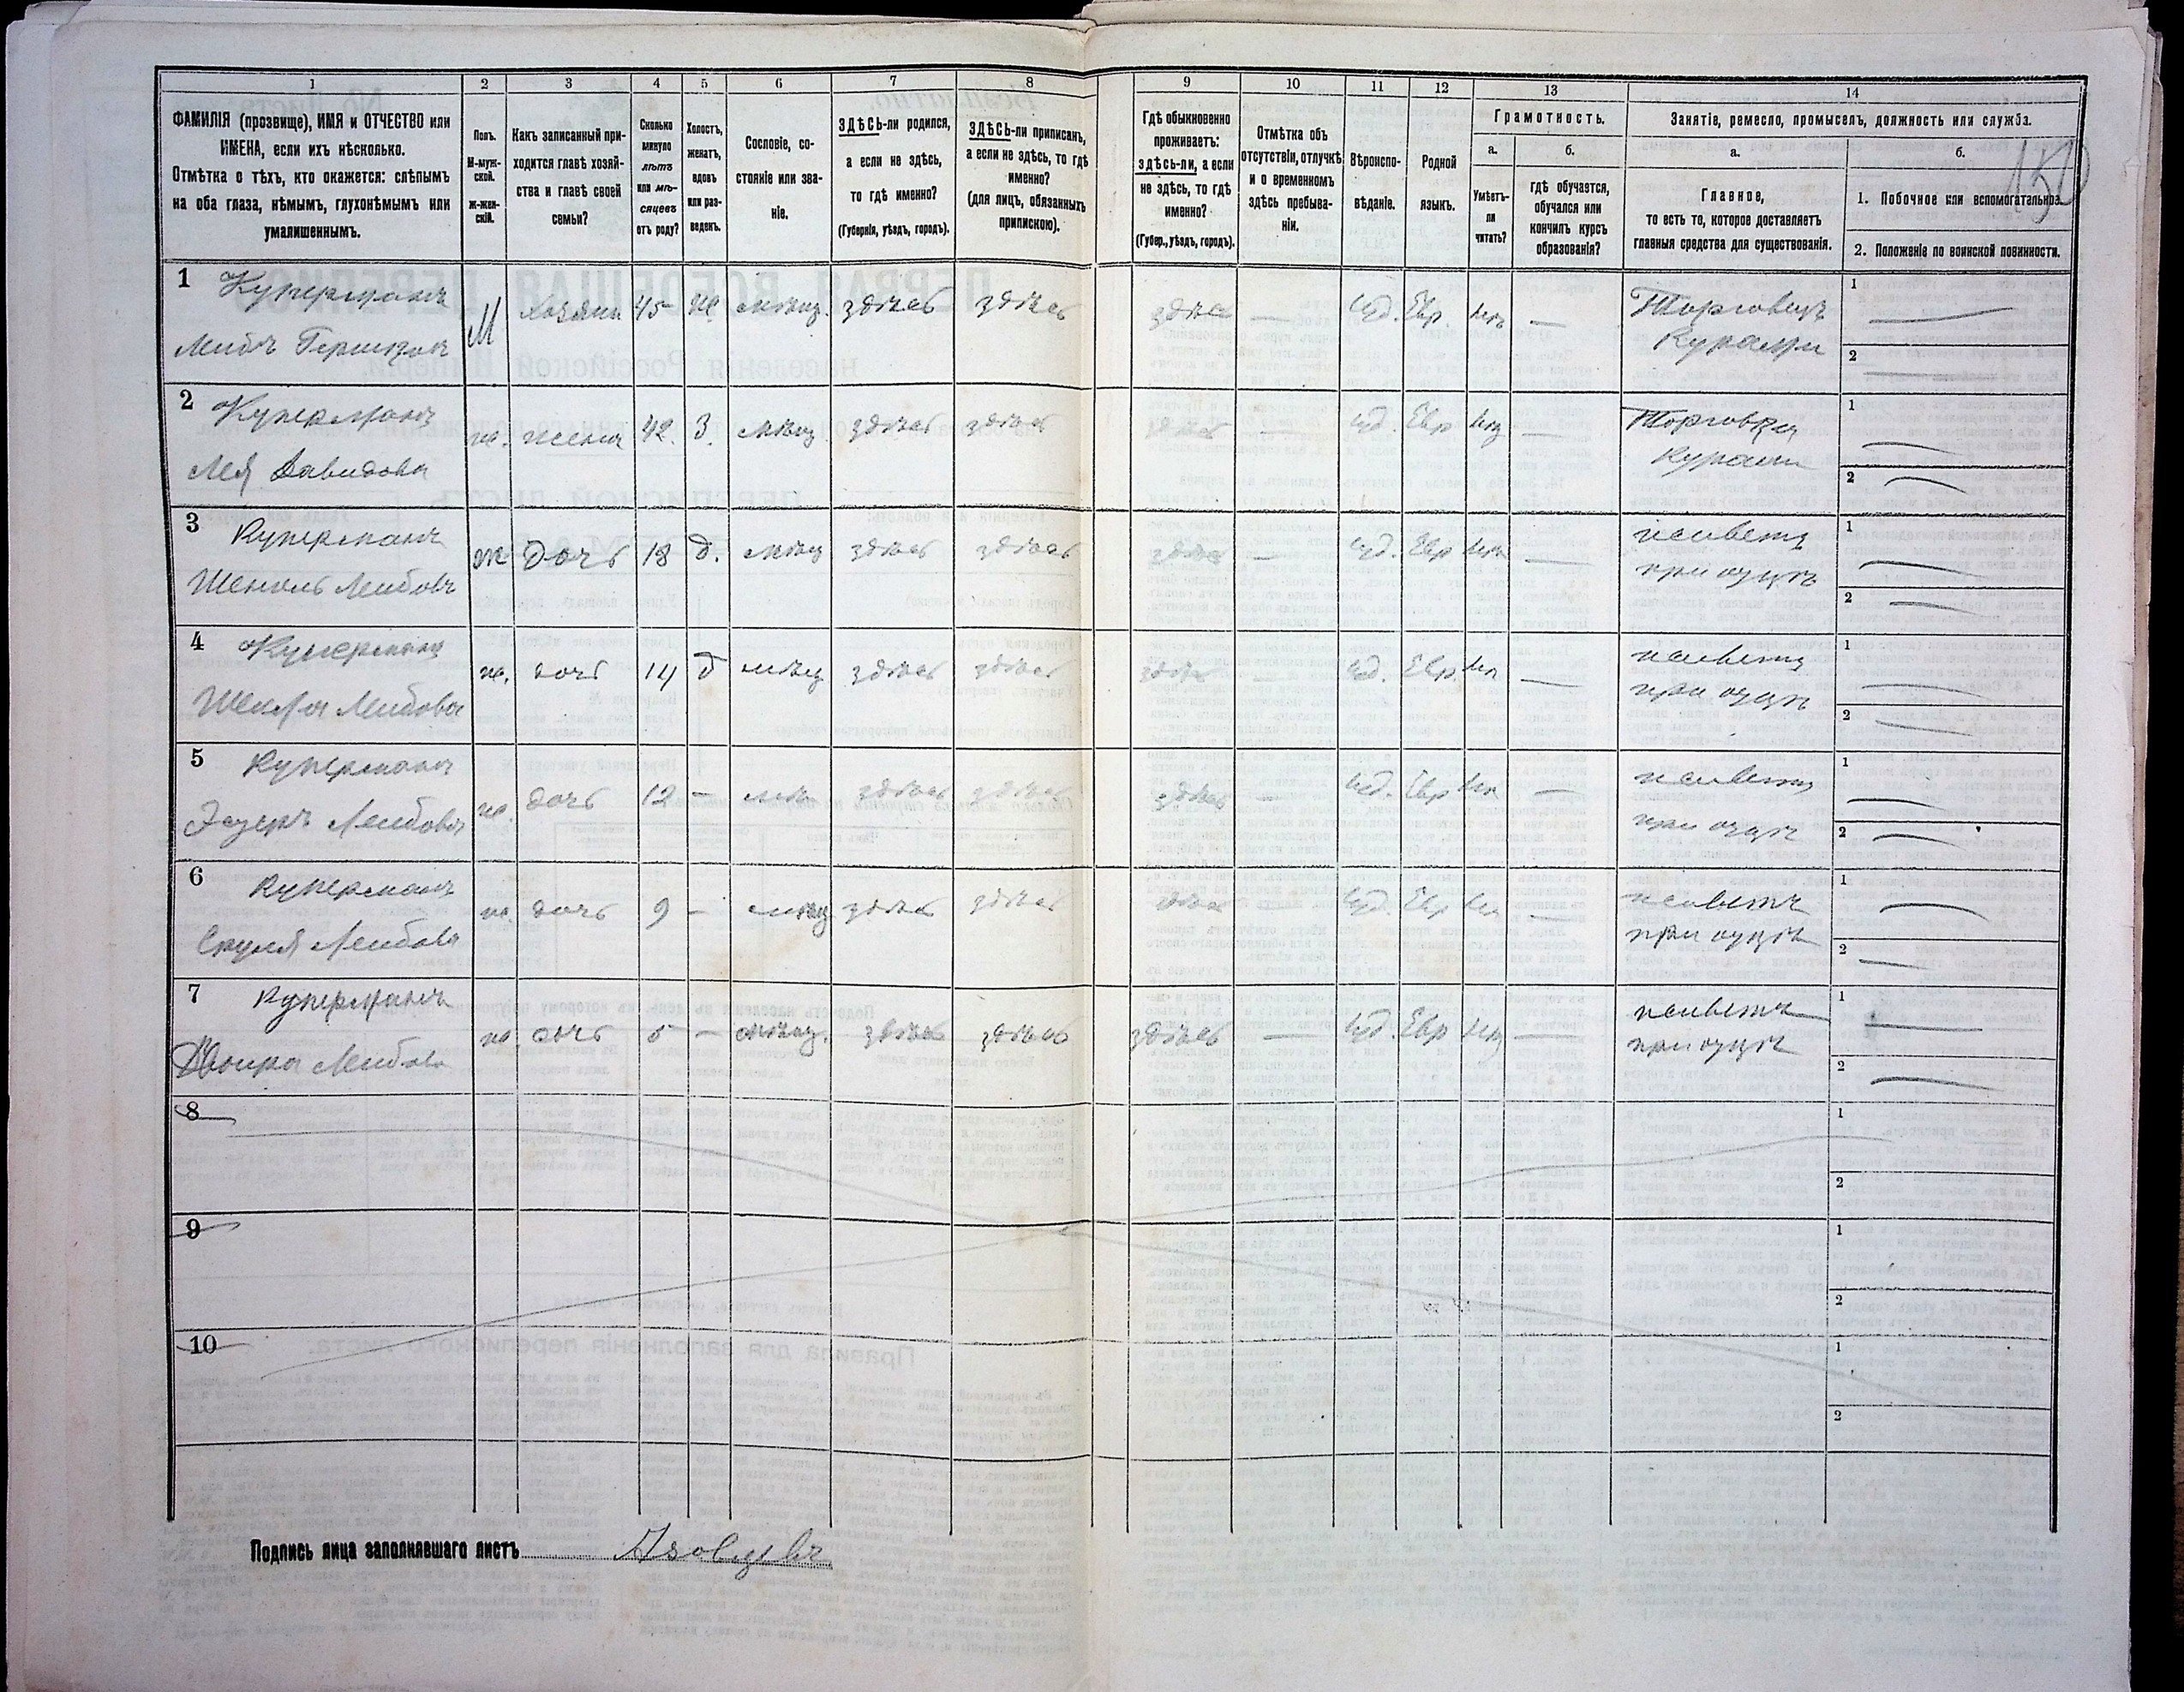 1 2 3 4 5 6 7 8 9 10 11 12 13 14
ФАМИЛІЯ (прозвище), ИМЯ и ОТЧЕСТВО или
ИМЕНА, если ихъ нѣсколько.
Отмѣтка о тѣхъ, кто окажется: слѣпымъ
на оба глаза, нѣмымъ, глухонѣмымъ или
умалишеннымъ.
Полъ.
М-муж-
ской.
Ж-жен-
скій.
Какъ записанный при-
ходится главѣ хозяй-
ства и главѣ своей
семьи?
Сколько
минуло
лѣтъ
или мѣ-
сяцевъ
отъ роду?
Холостъ,
женатъ,
вдовъ
или раз-
веденъ.
Сословіе, со-
стояніе или зва-
ніе.
ЗДѢСЬ-ли родился,
а если не здѣсь,
то гдѣ именно?
(Губернія, уѣздъ, городъ).
ЗДѢСЬ-ли приписанъ,
а если не здѣсь, то гдѣ
именно?
(для лицъ, обязанныхъ
припискою).
Гдѣ обыкновенно
проживаетъ:
здѣсь-ли, а если
не здѣсь, то гдѣ
именно?
(Губер., уѣздъ, городъ).
Отмѣтка объ
отсутствіи, отлучкѣ
и о временномъ
здѣсь пребыва-
ніи.
Вѣроиспо-
вѣданіе.
Родной
языкъ.
Грамотность.
а.
Умѣетъ-
ли
читать?
б.
гдѣ обучается,
обучался или
кончилъ курсъ
образованія?
Занятіе, ремесло, промыселъ, должность или служба.
а.
Главное,
то есть то, которое доставляетъ
главныя средства для существованія.
б.
150
1. Побочное или вспомогательное.
2. Положеніе по воинской повинности.
1 Куперманъ М хозяинъ 45 ж. мѣщ. здѣсь здѣсь здѣсь — іуд. Евр. нѣтъ — Торговецъ 1 —
Лейбъ Гершковъ Курами 2 —
2 Куперманъ ж. жена 42. З. мѣщ. здѣсь здѣсь здѣсь — іуд. Евр нѣтъ — Торговка 1 —
Лея Давидова курами 2 —
3 Куперманъ ж дочь 18 д. мѣщ здѣсь здѣсь здѣсь — іуд. Евр нѣтъ — живетъ 1 —
Лейбовъ при отцѣ 2 —
4 Куперманъ ж. дочь 14 д мѣщ здѣсь здѣсь здѣсь — іуд. Евр нѣтъ — живетъ 1 —
Лейбова при отцѣ 2 —
5 Куперманъ ж. дочь 12 — мѣщ здѣсь здѣсь здѣсь — іуд. Евр нѣтъ — живетъ 1 —
Лейбова при отцѣ 2 —
6 Куперманъ ж. дочь 9 — мѣщ здѣсь здѣсь здѣсь — іуд. Евр нѣтъ — живетъ 1 —
Лейбова при отцѣ 2 —
7 Куперманъ ж. дочь 5 — мѣщ. здѣсь здѣсь здѣсь — іуд. Евр нѣтъ — живетъ 1 —
Двойра Лейбова при отцѣ 2 —
8 1
2
9 1
2
10 1
2
Подпись лица заполнявшаго листъ